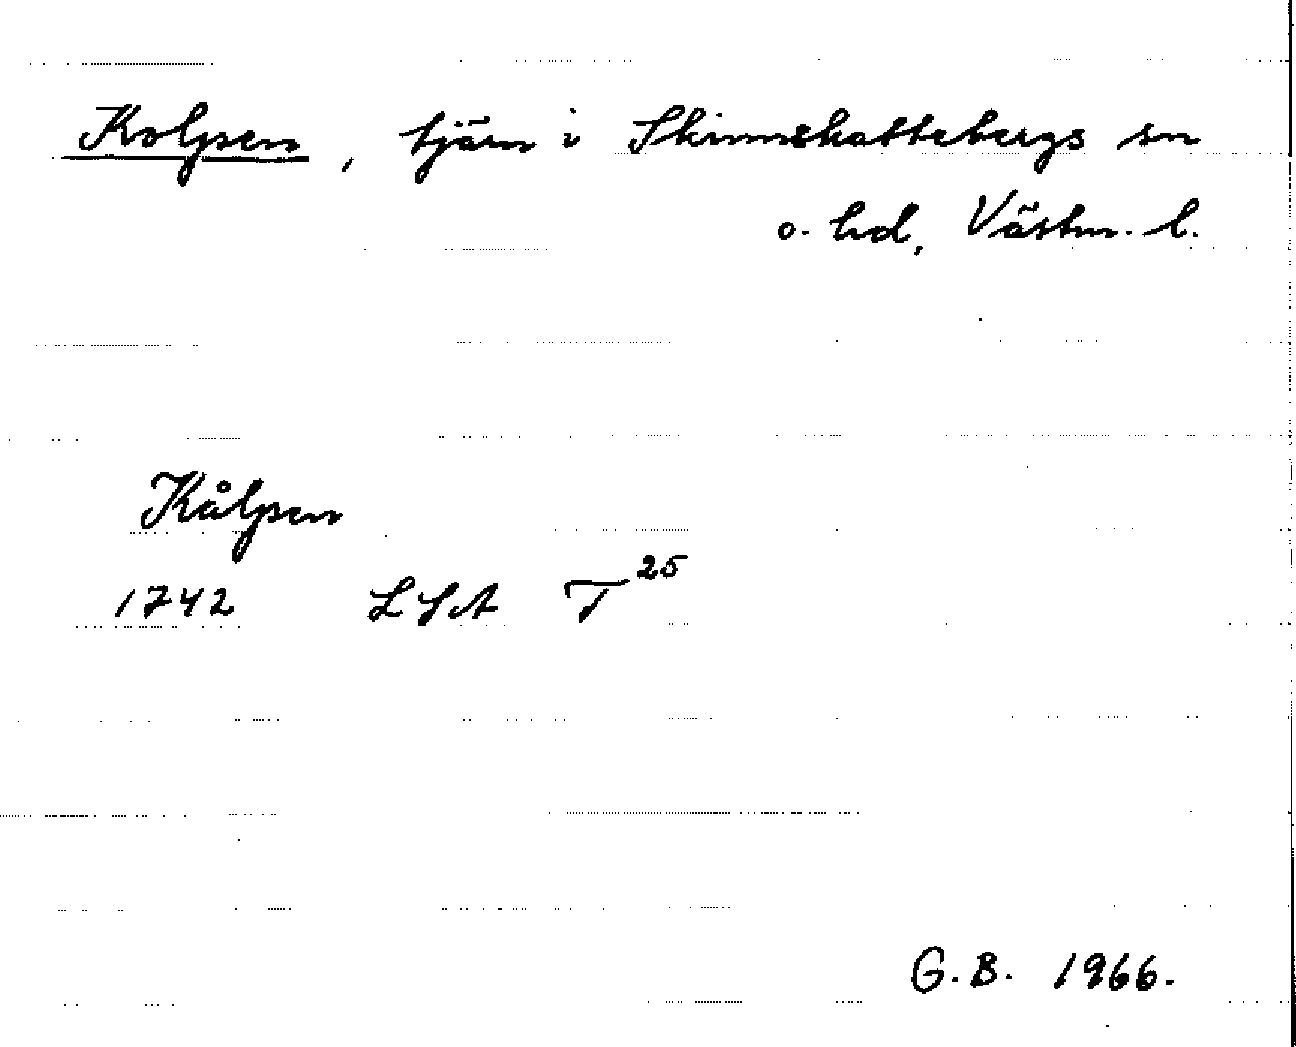 Kolpen, tjärn i Skinnskattebergs sn
o. hd, Västm. l.
Kålpen
1742 LSA T25
G.B. 1966.